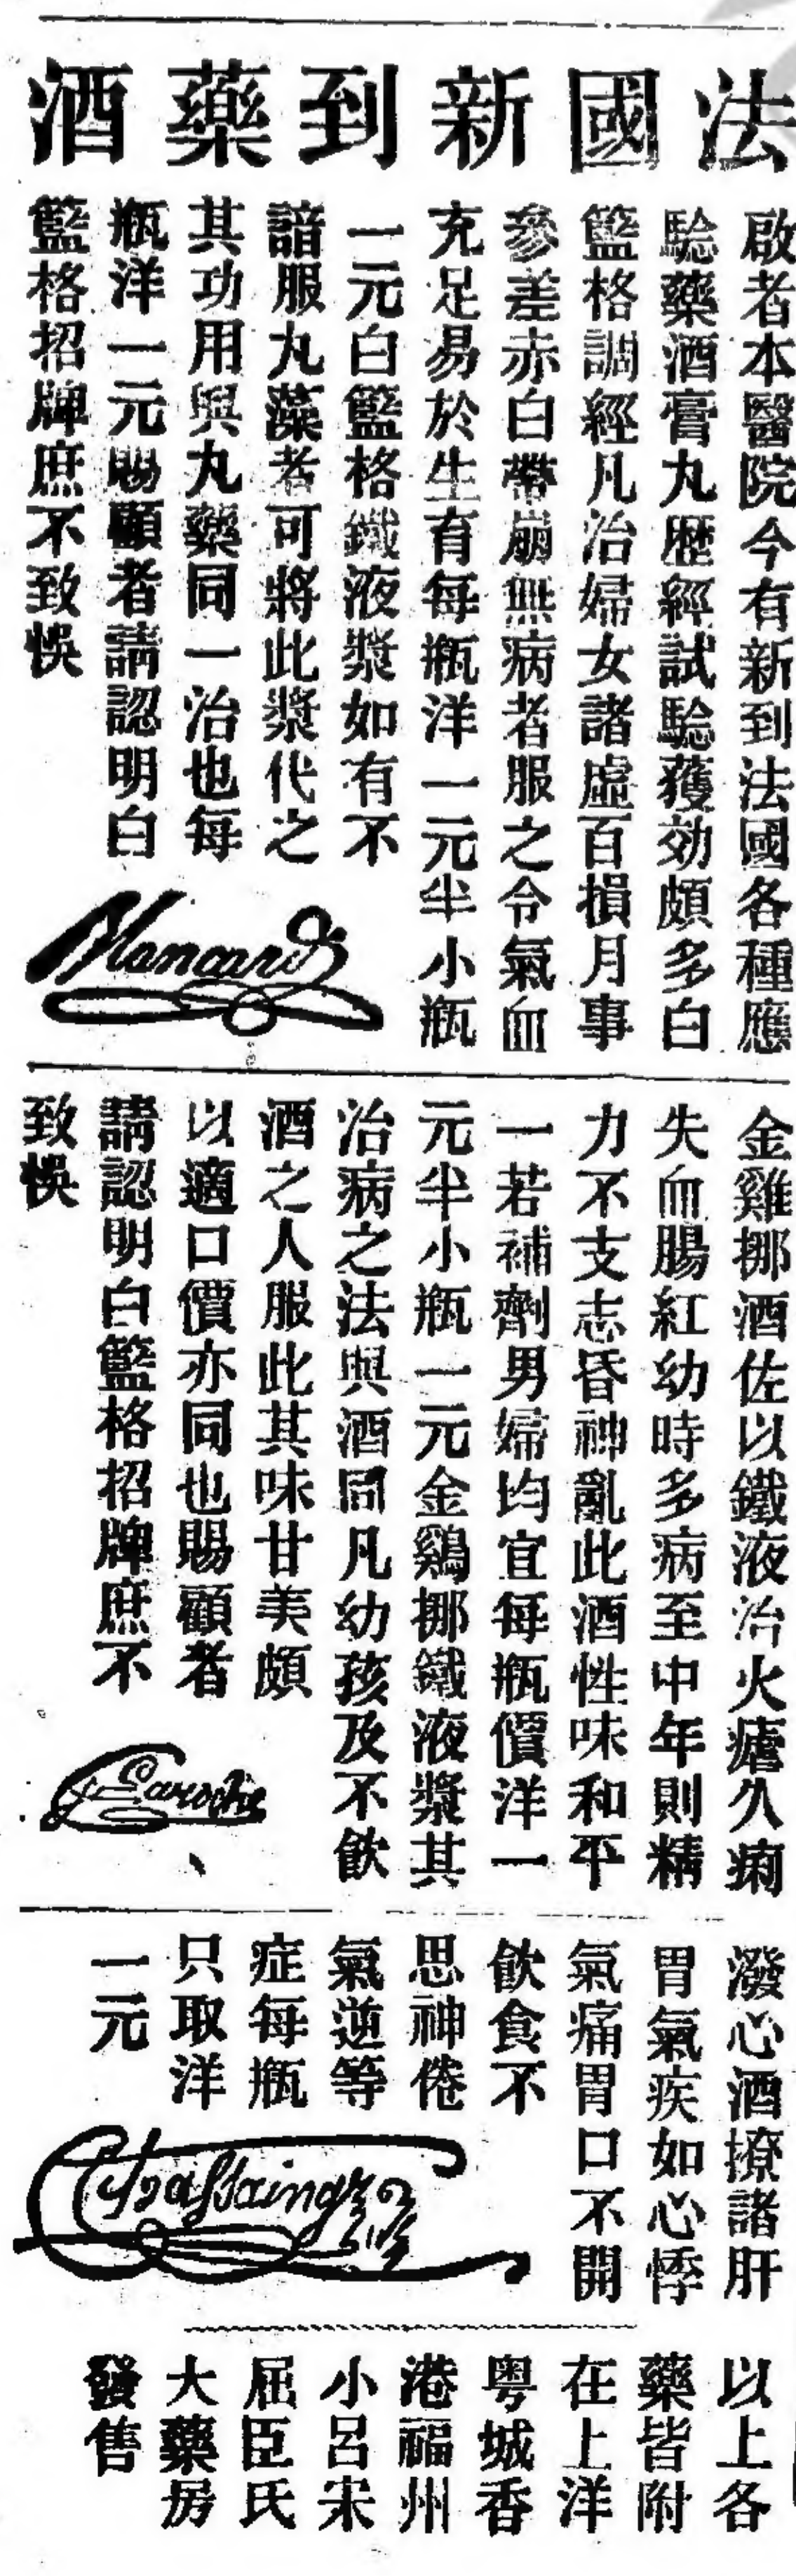 法國新到藥酒
啟者本醫院今有新到法國各種應
驗藥酒膏丸歷經試驗獲効頗多白
籃格調經凡治婦女諸虛百損月事
參差赤白帶崩無病者服之令氣血
充足易於生育每瓶洋一元半小瓶
一元白籃格鐵液漿如有不
諳服丸藥者可將此漿代之
其功用與丸藥同一治也每
瓶洋一元賜顧者請認明白
籃格招牌庶不致悞
Blancard
金雞挪酒佐以鐵液治火瘧久痢
失血腸紅幼時多病至中年則精
力不支志昏神亂此酒性味和平
一若補劑男婦均宜每瓶價洋一
元半小瓶一元金鷄挪鐵液漿其
治病之法與酒同凡幼孩及不飲
酒之人服此其味甘美頗
以適口價亦同也賜顧者
請認明白籃格招牌庶不
致悞
Laroche
潑心酒撩諸肝
胃氣疾如心悸
氣痛胃口不開
飲食不
思神倦
氣逆等
症每瓶
只取洋
一元
Chassaing
以上各
藥皆附
在上洋
粤城香
港福州
小呂宋
屈臣氏
大藥房
發售